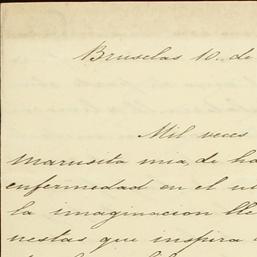 Bruselas 10. de
Mil veces
Marusita mia, de ha
enfermedad en el u
la imaginacion lle
nestas que inspira